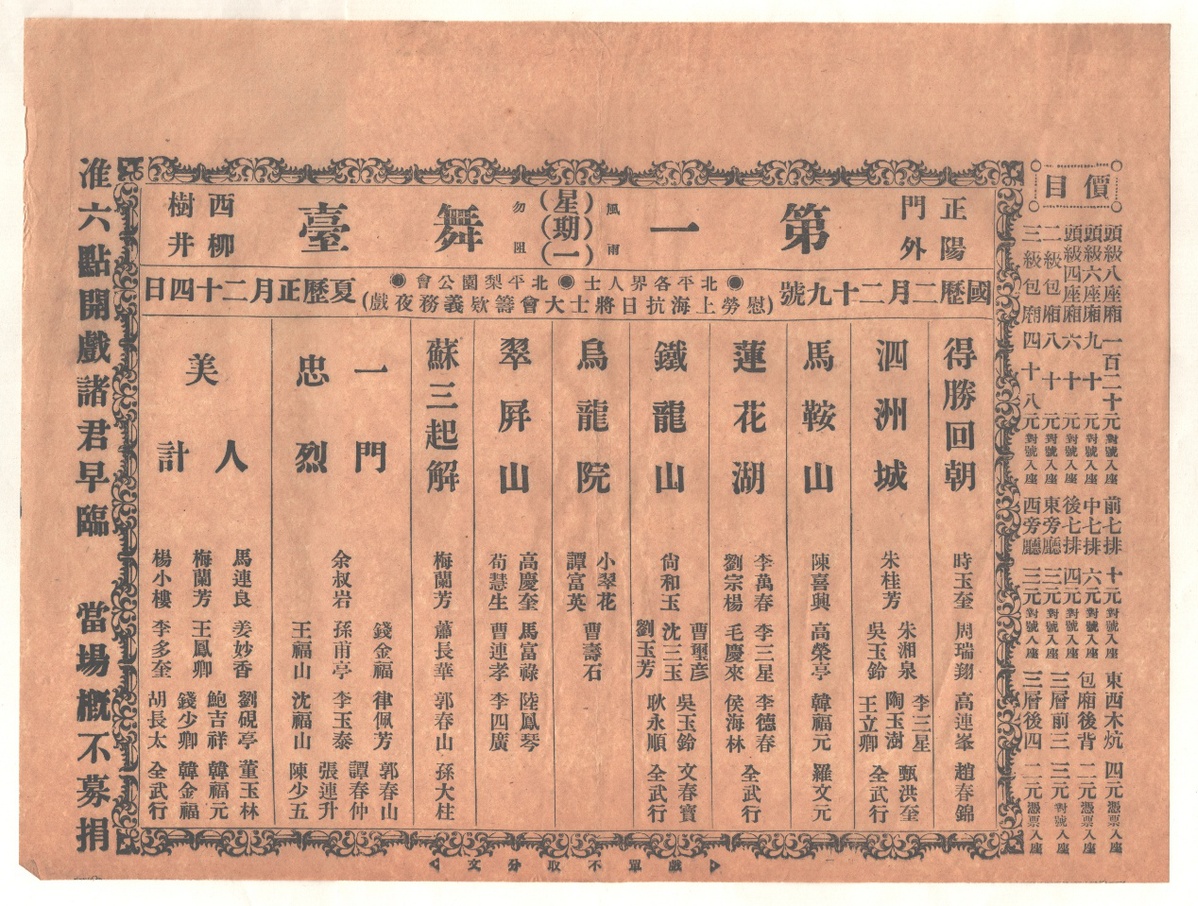 價目
頭級八座廂 一百二十元 對號入座
頭級六座廂 九十元 對號入座
頭級四座廂 六十元 對號入座
二級包廂 八十元 對號入座
三級包廂 四十八元 對號入座
前七排 十元 對號入座
中七排 六元 對號入座
後七排 四元 對號入座
東旁廳 三元 對號入座
西旁廳 三元 對號入座
東西木炕 四元 憑票入座
包廂後背 二元 憑票入座
三層前三 三元 對號入座
三層後四 二元 憑票入座
正陽門外
第一舞臺
風雨勿阻
(星期一)
西柳樹井
國歷二月二十九號
◉北平各界人士◉北平梨園公會◉
(慰勞上海抗日將士大會籌欵義務夜戲)
夏歷正月二十四日
得勝回朝
時玉奎 周瑞翔 高連峯 趙春錦
泗洲城
朱桂芳 朱湘泉 吳玉鈴 李三星 陶玉澍 王立卿 甄洪奎 全武行
馬鞍山
陳喜興 高榮亭 韓福元 羅文元
蓮花湖
李萬春 劉宗楊 李三星 毛慶來 李德春 侯海林 全武行
鐵龍山
尙和玉 曹璽彦 沈三玉 劉玉芳 吳玉鈴 耿永順 文春寶 全武行
烏龍院
小翠花 譚富英 曹壽石
翠屛山
高慶奎 荀慧生 馬富祿 曹連孝 陸鳳琴 李四廣
蘇三起解
梅蘭芳 蕭長華 郭春山 孫大柱
一門忠烈
余叔岩 錢金福 孫甫亭 王福山 律佩芳 李玉泰 沈福山 郭春山 譚春仲 張連升 陳少五
美人計
馬連良 梅蘭芳 楊小樓 姜妙香 王鳳卿 李多奎 劉硯亭 鮑吉祥 錢少卿 胡長太 董玉林 韓福元 韓金福 全武行
准六點開戲諸君早臨 當場概不募捐
戲單不取分文